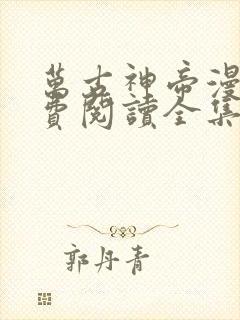 萬古神帝漫
費閱讀全集
郭丹青